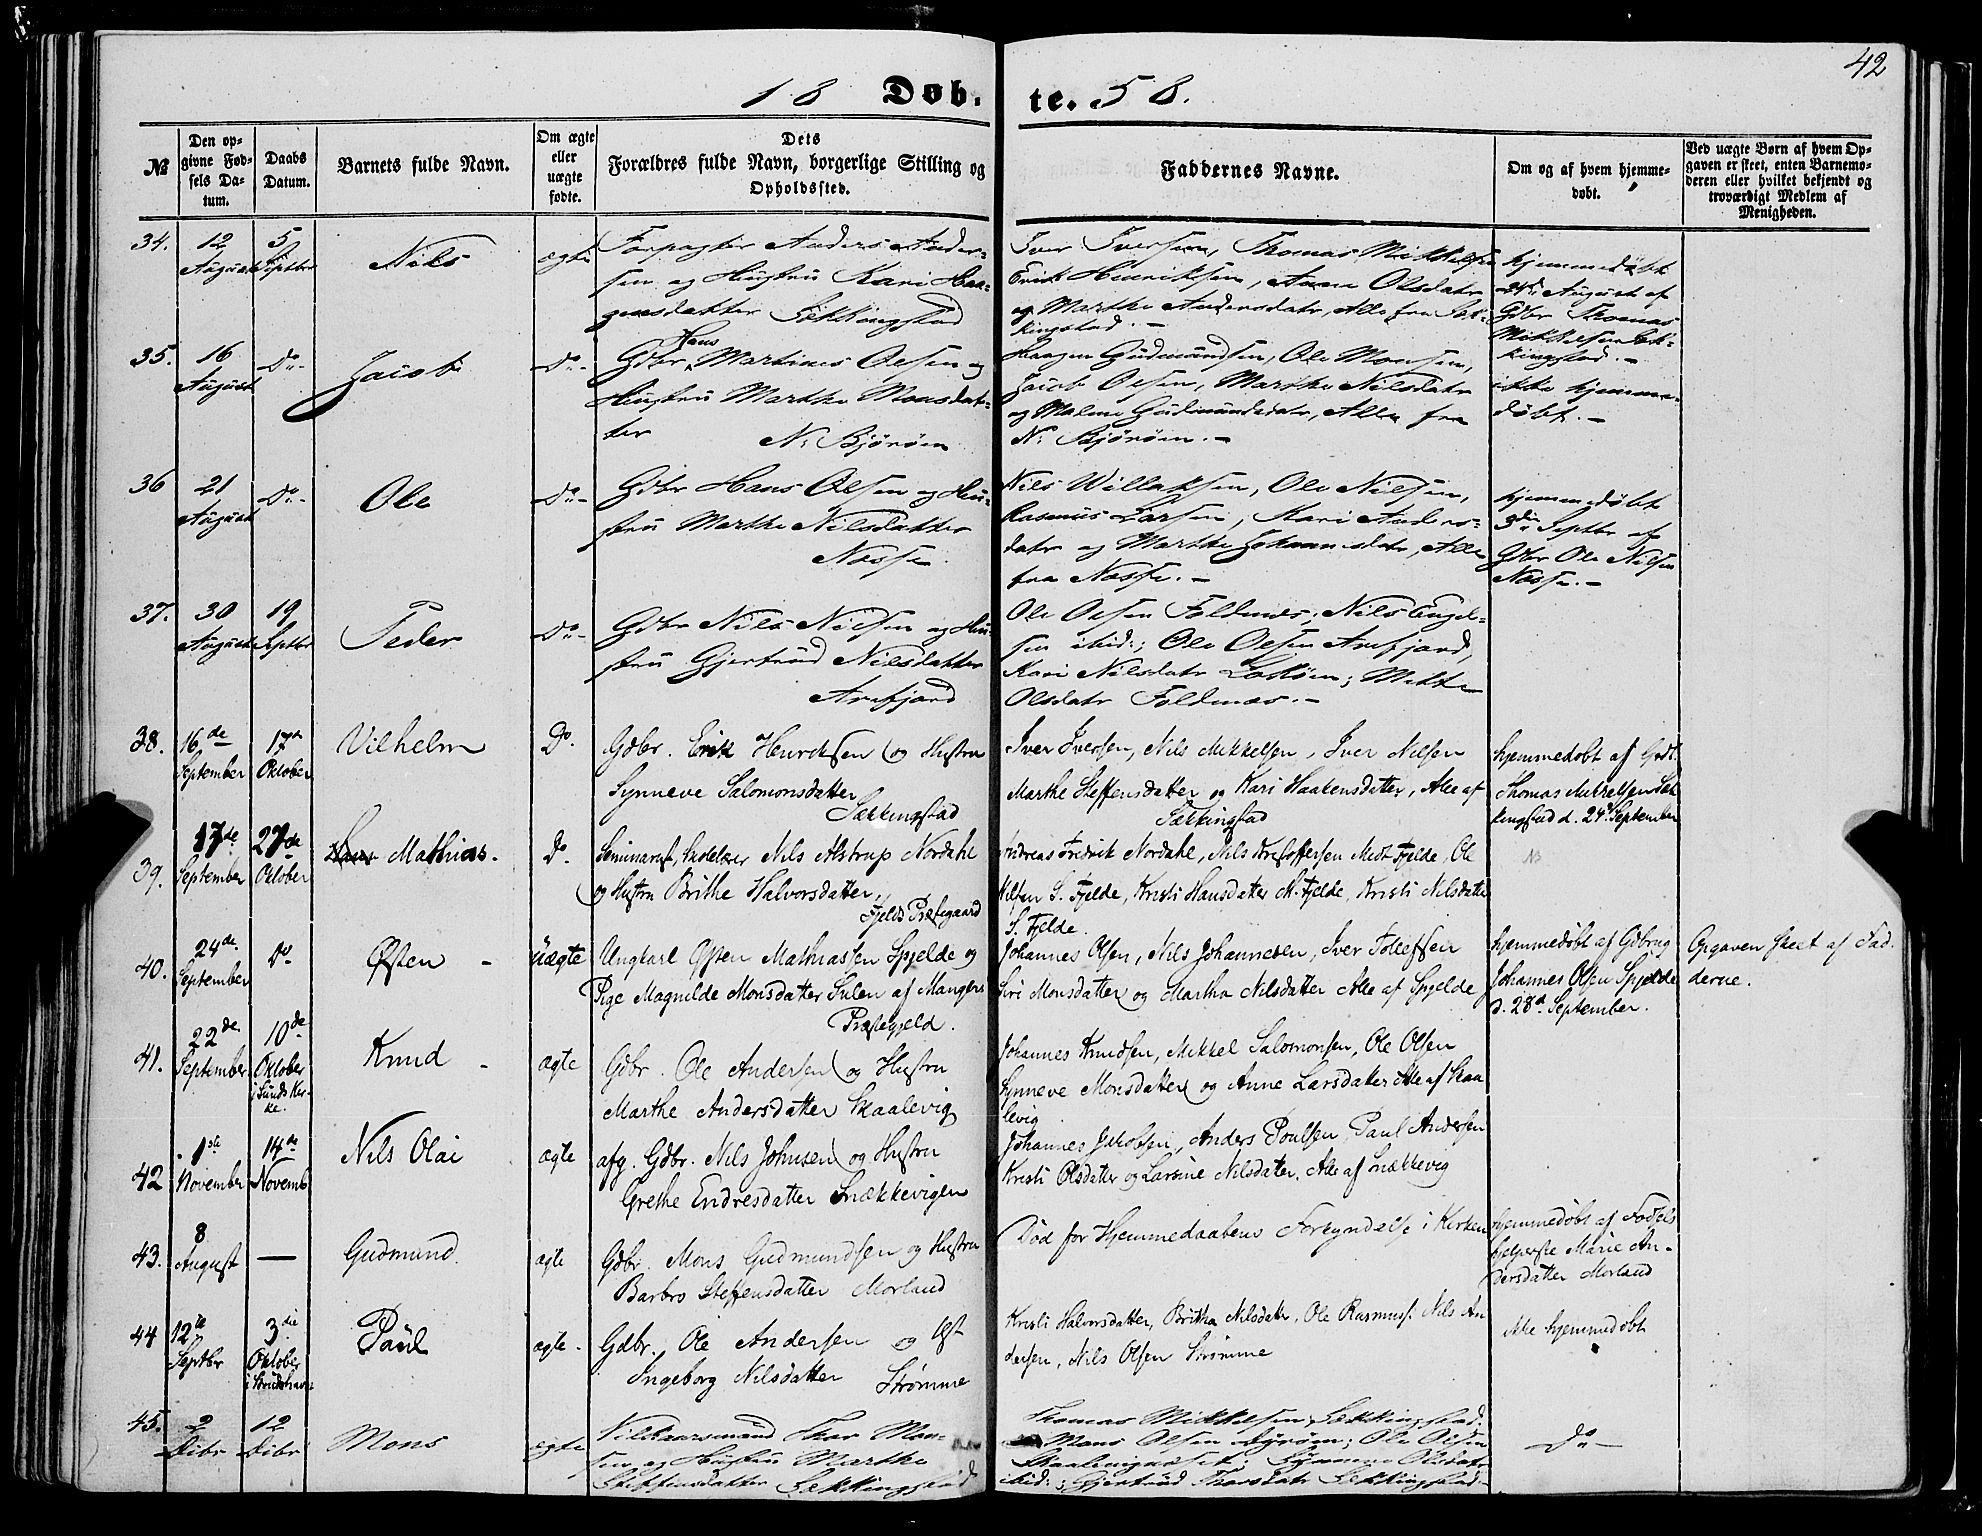 42
18 Døb. te. 58.
№
Den opgivne Fødsels Datum.
Daabs Datum.
Barnets fulde Navn.
Om ægte eller uægte fødte.
Dets Forældres fulde Navn, borgerlige Stilling og Opholdssted.
Faddernes Navne.
Om og af hvem hjemmedøbt.
Ved uægte Børn af hvem Opgaven er skeet, enten Barnemoderen eller hvilket bekjendt og troværdigt Medlem af Menigheden.
34.
12 August
5 Septbr
Nils
ægte
Forpagter Anders Ander-
sen og Hustru Kari Haa-
gensdatter Sekkingstad
Iver Iversen, Thomas Mikkelsen
Erik Henriksen, Anne Olsdatr
og Marthe Andersdatr, Alle fra Sek-
kingstad.-
hjemmedøbt
24de August af
Gdbr Thomas
Mikkelsen Sek-
kingstad.-
35.
16 August
Do-
Jacob
Do-
Gdbr Hans Martines Olsen og
Hustru Marthe Monsdat-
ter N: Bjørøen
Haagen Gudmundsen, Ole Monsen,
Jacob Olsen, Marthe Nilsdatr
og Malene Gudmundsdatr, Alle fra
N: Bjørøen.-
ikke hjemme-
døbt.-
36
21 August
Do-
Ole
Do-
Gdbr Hans Olsen og Hu-
stru Marthe Nilsdatter
Næsse
Nils Willaksen, Ole Nilsen,
Rasmus Larsen, Kari Anders-
datr og Marthe Johannesdatr, Alle
fra Næsse.-
hjemmedøbt
3die Septbr af
Gdbr Ole Nilsen
Næsse.-
37.
30 August
19 Septbr
Peder
Do-
Gdbr Nils Nilsen og Hu-
stru Gjertrud Nilsdatter
Arefjord
Ole Olsen Foldnæs; Nils Engel-
sen ibid:; Ole Olsen Arefjord,
Kari Nilsdatr; Mette
Olsdatr Foldnæs.-
38.
16de September
17de Oktober
Vilhelm
Do.
Gdbr. Erik Henriksen og Hustru
Synneve Salomonsdatter
Sækkingstad
Iver Iversen, Nils Mikkelsen, Iver Nilsen
Marthe Steffensdatter og Kari Haakensdatter, Alle af
Sækkingstad
hjemmedøbt af Gdb.
Thomas Mikkelsen Sæk
kingstad d. 24de September
39.
17de September
27de Oktober
Mathias.
Do.
Seminarist, Skolelærer Nils Alstrup Nordahl
og Hustru Brithe Halvorsdatter,
Fjelds Præstegaard
Andreas Fredrik Nordahl, Nils Kristoffersen Midt Fjelde, Ole
Nilsen S. Fjelde, Kristi Hansdatter M. Fjelde, Kristi Nilsdatter
S. Fjelde.
40.
24de September
Do
Østen -
üægte
Ungkarl Østen Mathiassen Spjelde og
Pige Magnilde Monsdatter Sulen af Mangers
Præstegjeld.
Johannes Olsen, Nils Johannesen, Iver Tollefsen
Siri Monsdatter og Martha Nilsdatter Alle af Spjelde
hjemmedøbt af Gdbrug
Johannes Olsen Spjelde
d. 28d September.
Opgaven skeet af Fad
derne.
41.
22de September
10de Oktober
i Sunds Kir-
ke.
Knud -
ægte
Gdbr. Ole Andersen og Hustru
Marthe Andersdatter Skaalevig
Johannes Knudsen, Mikkel Salomonsen, Ole Olsen
Synneve Monsdatter og Anne Larsdatter Alle af Skaa
levig
42
1ste November
14de Novemb
Nils Olai
ægte
afg. Gdbr. Nils Johnsen og Hustru
Grethe Endresdatter Snækkevigen
Johannes Jakobsen, Anders Poulsen, Paul Andersen
Kristi Olsdatter og Larsine Nilsdatter, Alle af Snækkevig
43.
8 August
—
Gudmund.
ægte
Gdbr. Mons Gudmundsen og Hustru
Barbro Steffensdatter Morland
Død før Hjemmedaabens Forkyndelse i Kirken
hjemmedøbt af Fødsels
hjelperske Marie An-
dersdatter Morland
44
12te Septbr
3die Oktober
Paul
ægte.
Gdbr. Ole Andersen og Hst
Ingeborg Nilsdatter Strømme
Kristi Halvorsdatter, Britha Nilsdatter, Ole Rasmuss. Nils An
dersen, Nils Olsen Strømme
ikke hjemmedøbt
45.
2 Decbr
12 Decbr
Mons
ægte
Vilkaarsmand Thor Mon-
sen og Hustru Marthe
Steffensdatter Sekkingstad
Thomas Mikkelsen Sekkingstad.
Mons Olsen Dyrøen; Ole Olsen
Skaalevig; Synneve Olsdatr
ibid:; Gjertrud Thorsdatr Sekkingstad-
Do-